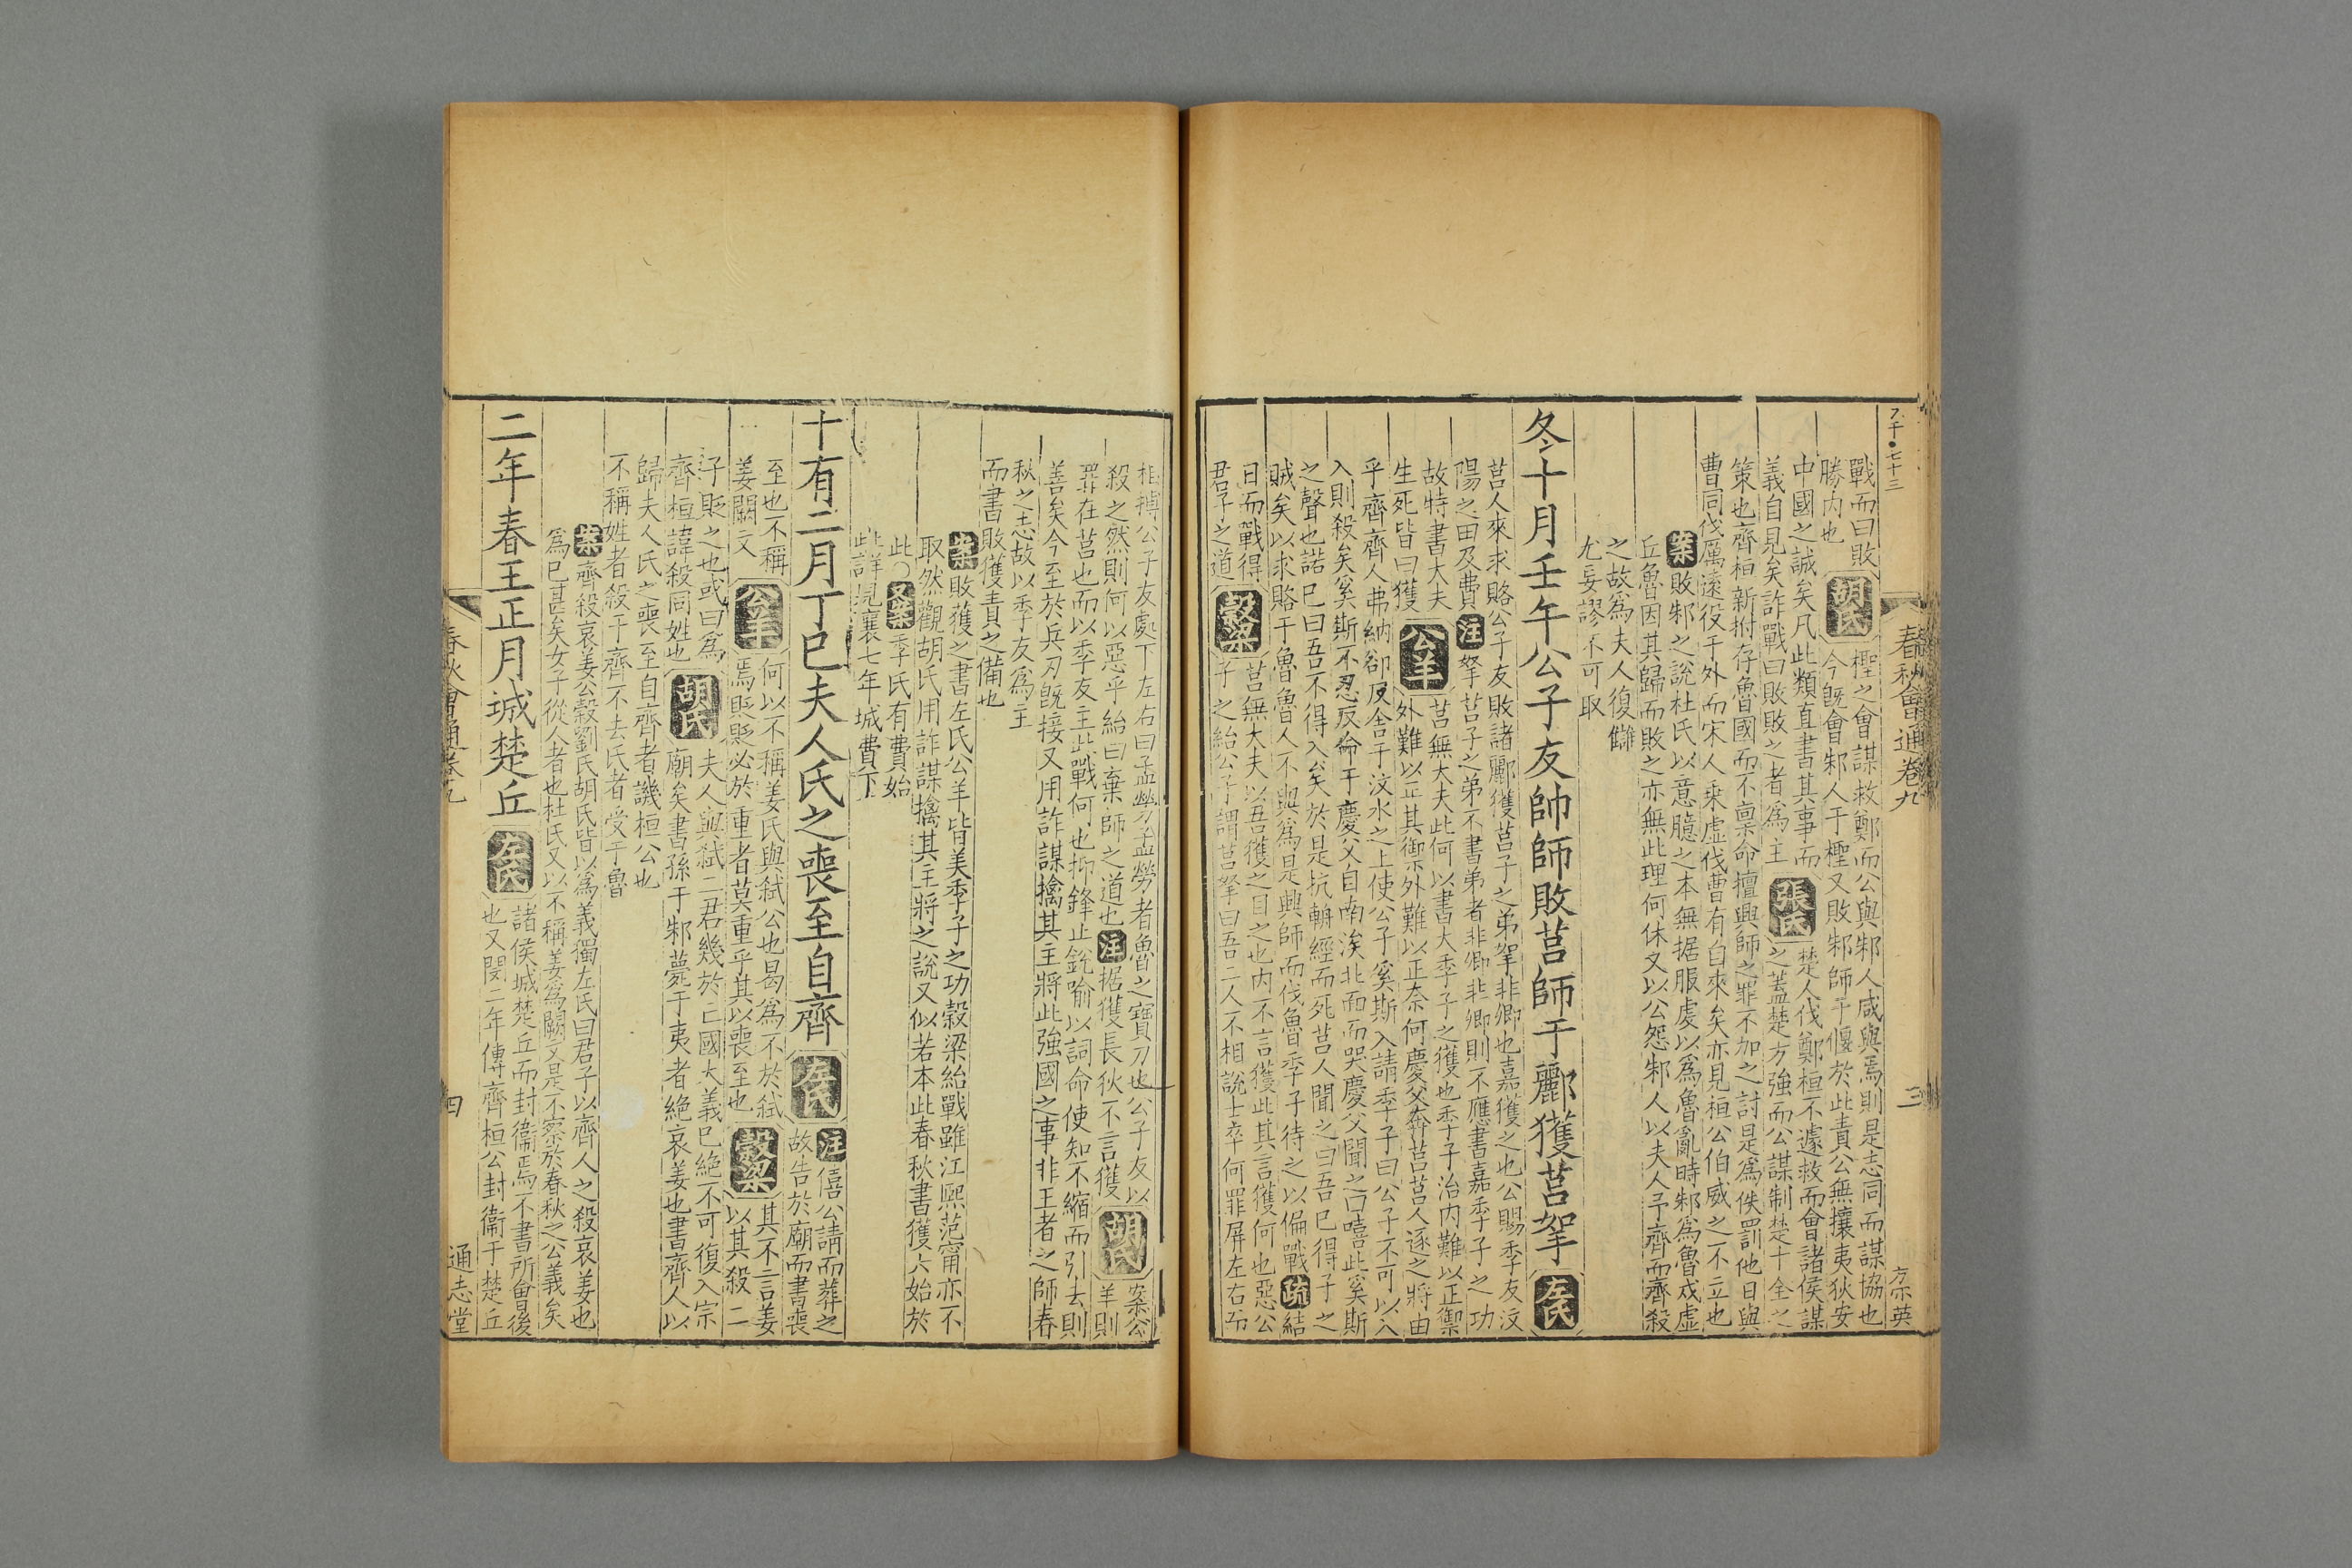 字・七十三
春秋會通卷九
三
宗英
戰而曰敗
勝内也
胡氏
檉之會謀救鄭而公與邾人咸與焉則是志同而謀協也
今旣會邾人于檉又敗邾師于偃於此責公無攘夷狄安
中國之誠矣凡此類直書其事而
義自見矣詐戰曰敗敗之者爲主
張氏
楚人伐鄭桓不遽救而會諸侯謀
之蓋楚方強而公謀制楚十全之
策也齊桓新拊存魯國而不稟命擅興師之罪不加之討是爲佚罰他日與
曹同伐厲遠役于外而宋人乘虛伐曹有自來矣亦見桓公伯威之不立也
案敗邾之說杜氏以意臆之本無据服虔以爲魯亂時邾爲魯戍虛
丘魯因其歸而敗之亦無此理何休又以公怨邾人以夫人予齊而齊殺
之故爲夫人復讎
尤妄謬不可取
冬十月壬午公子友帥師敗莒師于酈獲莒挐
左氏
莒人來求賂公子友敗諸酈獲莒子之弟挐非卿也嘉獲之也公賜季友汶
陽之田及費注挐莒子之弟不書弟者非卿非卿則不應書嘉季子之功
故特書大夫
生死皆曰獲
公羊
莒無大夫此何以書大季子之獲也季子治内難以正禦
外難以正其御外難以正奈何慶父奔莒莒人逐之將由
乎齊齊人弗納卻反舍于汶水之上使公子奚斯入請季子曰公子不可以入
入則殺矣奚斯不忍反命于慶父自南涘北面而哭慶父聞之曰嘻此奚斯
之聲也諾已曰吾不得入矣於是抗輈經而死莒人聞之曰吾已得子之
賊矣以求賂于魯魯人不與爲是興師而伐魯季子待之以偏戰疏結
日而戰得
君子之道
穀梁
莒無大夫以吾獲之目之也内不言獲此其言獲何也惡公
子之紿公子謂莒挐曰吾二人不相說士卒何罪屏左右而
相搏公子友處下左右曰孟勞孟勞者魯之寶刀也公子友以
殺之然則何以惡乎紿曰棄師之道也注据獲長狄不言獲
胡氏
案公
羊則
罪在莒也而以季友主此戰何也抑鋒止銳喻以詞命使知不縮而引去則
善矣今至於兵刃旣接又用詐謀擒其主將此強國之事非王者之師春
秋之志故以季友爲主
而書敗獲責之備也
案敗獲之書左氏公羊皆美季子之功穀梁紿戰雖江熙范甯亦不
取然觀胡氏用詐謀擒其主將之說又似若本此春秋書獲六始於
此〇又案季氏有費始
此詳見襄七年城費下
十有二月丁巳夫人氏之喪至自齊
左氏
注僖公請而葬之
故告於廟而書喪
至也不稱
姜闕文
公羊
何以不稱姜氏與弑公也曷爲不於弑
焉貶貶必於重者莫重乎其以喪至也
穀梁
其不言姜
以其殺二
子貶之也或曰爲
齊桓諱殺同姓也
胡氏
夫人與弑二君幾於亡國大義已絶不可復入宗
廟矣書孫于邾薨于夷者絶哀姜也書齊人以
歸夫人氏之喪至自齊者譏桓公也
不稱姓者殺于齊不去氏者受于魯
案齊殺哀姜公穀劉氏胡氏皆以爲義獨左氏曰君子以齊人之殺哀姜也
爲已甚矣女子從人者也杜氏又以不稱姜爲闕文是不察於春秋之公義矣
二年春王正月城楚丘
左氏
諸侯城楚丘而封衞焉不書所會後
也又閔二年傳齊桓公封衞于楚丘
春秋會通卷九
四
通志堂